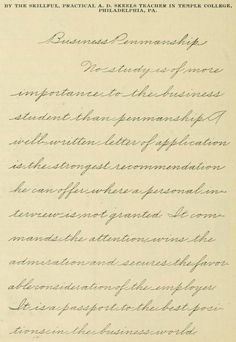 BY THE SKILLFUL, PRACTICAL A. D. SKEELS TEACHER IN TEMPLE COLLEGE,
PHILADELPHIA, PA.
Business Penmanship
No study is of more
importance to the business
student than penmanship A
well written letter of application
is the strongest recommendation
he can offer where a personal in-
terview is not granted It com-
mands the attention, wins the
admiration and secures the favor-
able consideration of the employer
It is a passport to the best posi-
tions in the business world